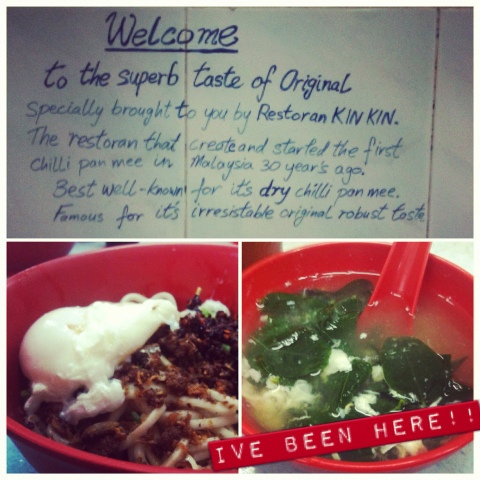 Welcome
to the superb taste of Original
Specially brought to you by Restoran KIN KIN.
The restoran that create and started the first
chilli pan mee in Malaysia 30 year's ago.
Best well-known for it's dry chilli pan mee.
Famous for it's irresistable original robust taste
IVE BEEN HERE!!